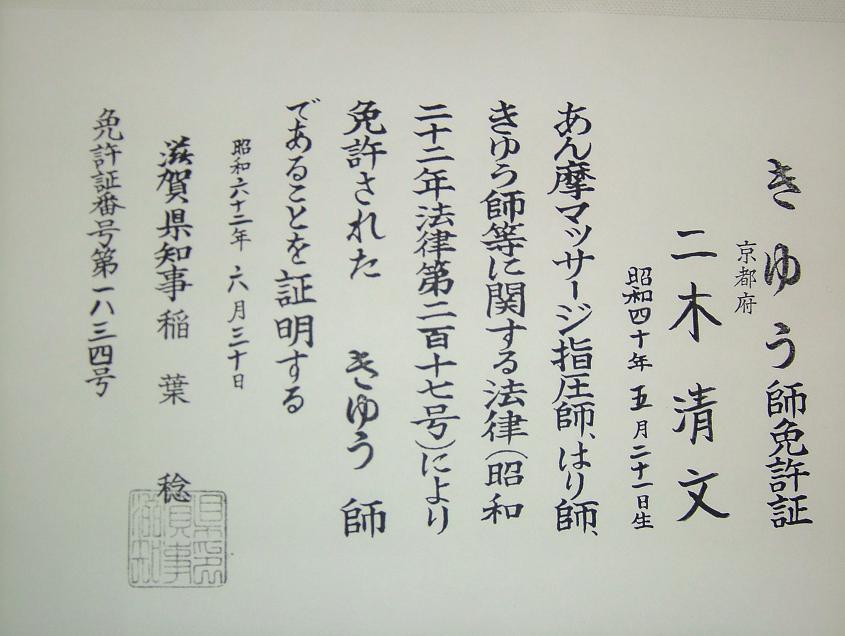 きゆう師免許証
京都府
二木清文
昭和四十年五月二十一日生
あん摩マッサージ指圧師、はり師、
きゆう師等に関する法律(昭和
二十二年法律第二百十七号)により
免許された きゆう師
であることを証明する
昭和六十二年六月三十日
滋賀県知事稲葉稔
免許証番号第一八三四号